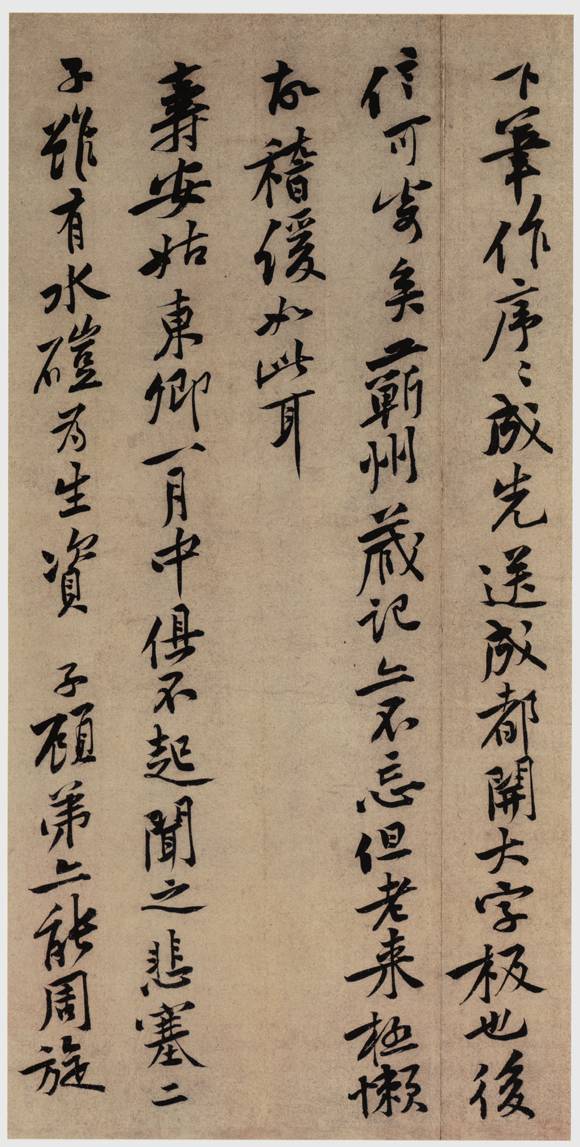 下筆作序〻成先送成都開大字板也後
信可寄矣蘄州藏記亦不忘但老来極懶
故稽緩如此耳
壽安姑東卿一月中俱不起聞之悲塞二
子雖有水磑為生資子顧弟亦能周旋